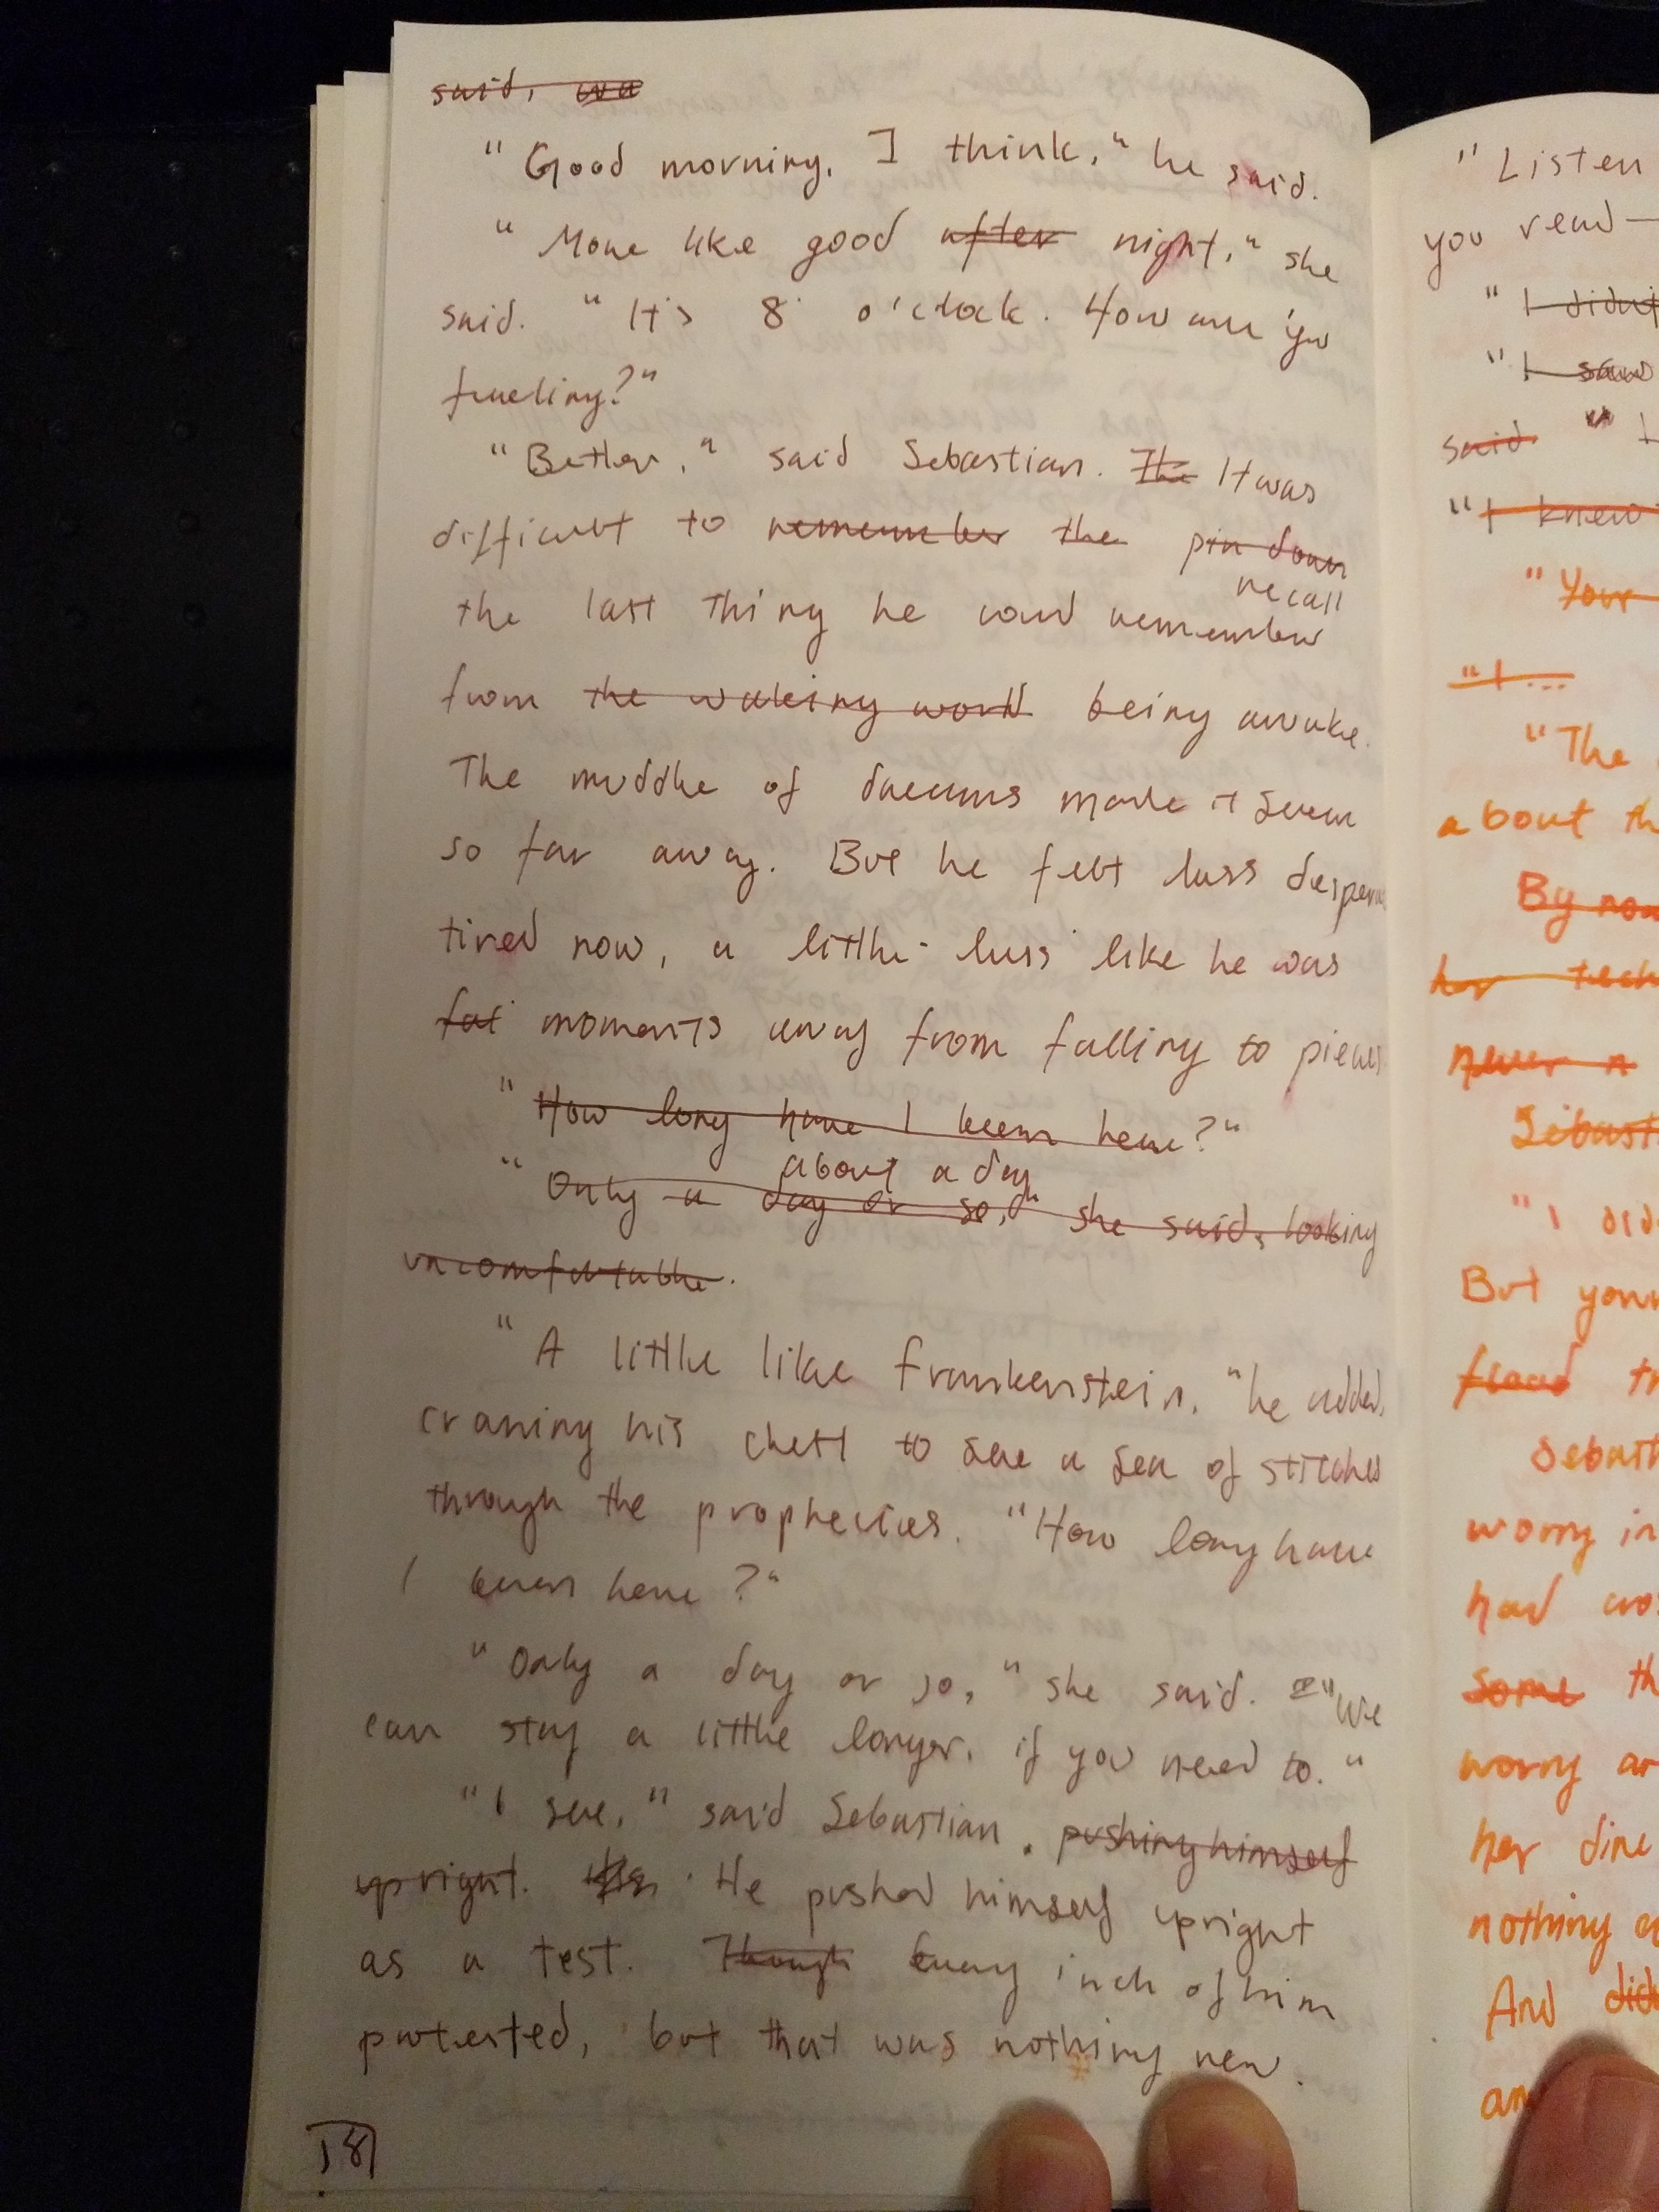 said, wa
"Good morning. I think," he said.
"More like good after night," she
said. "It's 8 o'clock. How are you
feeling?"
"Better," said Sebastian. The It was
difficult to remember the pin down
recall
the last thing he could remember
from the waking world being awake.
The muddle of dreams made it seem
so far away. But he felt less
tired now, a little less like he was
fal moments away from falling to pieces
"How long have I been here?"
about a day
"Only a day or so," she said, looking
uncomfortable.
"A little like Frankenstein," he added,
craning his chest to see a sea of stitches
through the prophecies. "How long have
I been here?"
"Only a day or so," she said. "We
can stay a little longer, if you need to."
"I see," said Sebastian. pushing himself
upright. He pushed himself upright
as a test. Though Every inch of him
protested, but that was nothing new.
181
"Listen
you read—
"I didn't
"I saw
said. "I
"I knew
"Your
"I...
"The
about th
By now
her tech
never n
Sebast
"I did
But your
tr
Sebast
worry in
had cros
some th
worry ar
her dire
nothing
And did
an